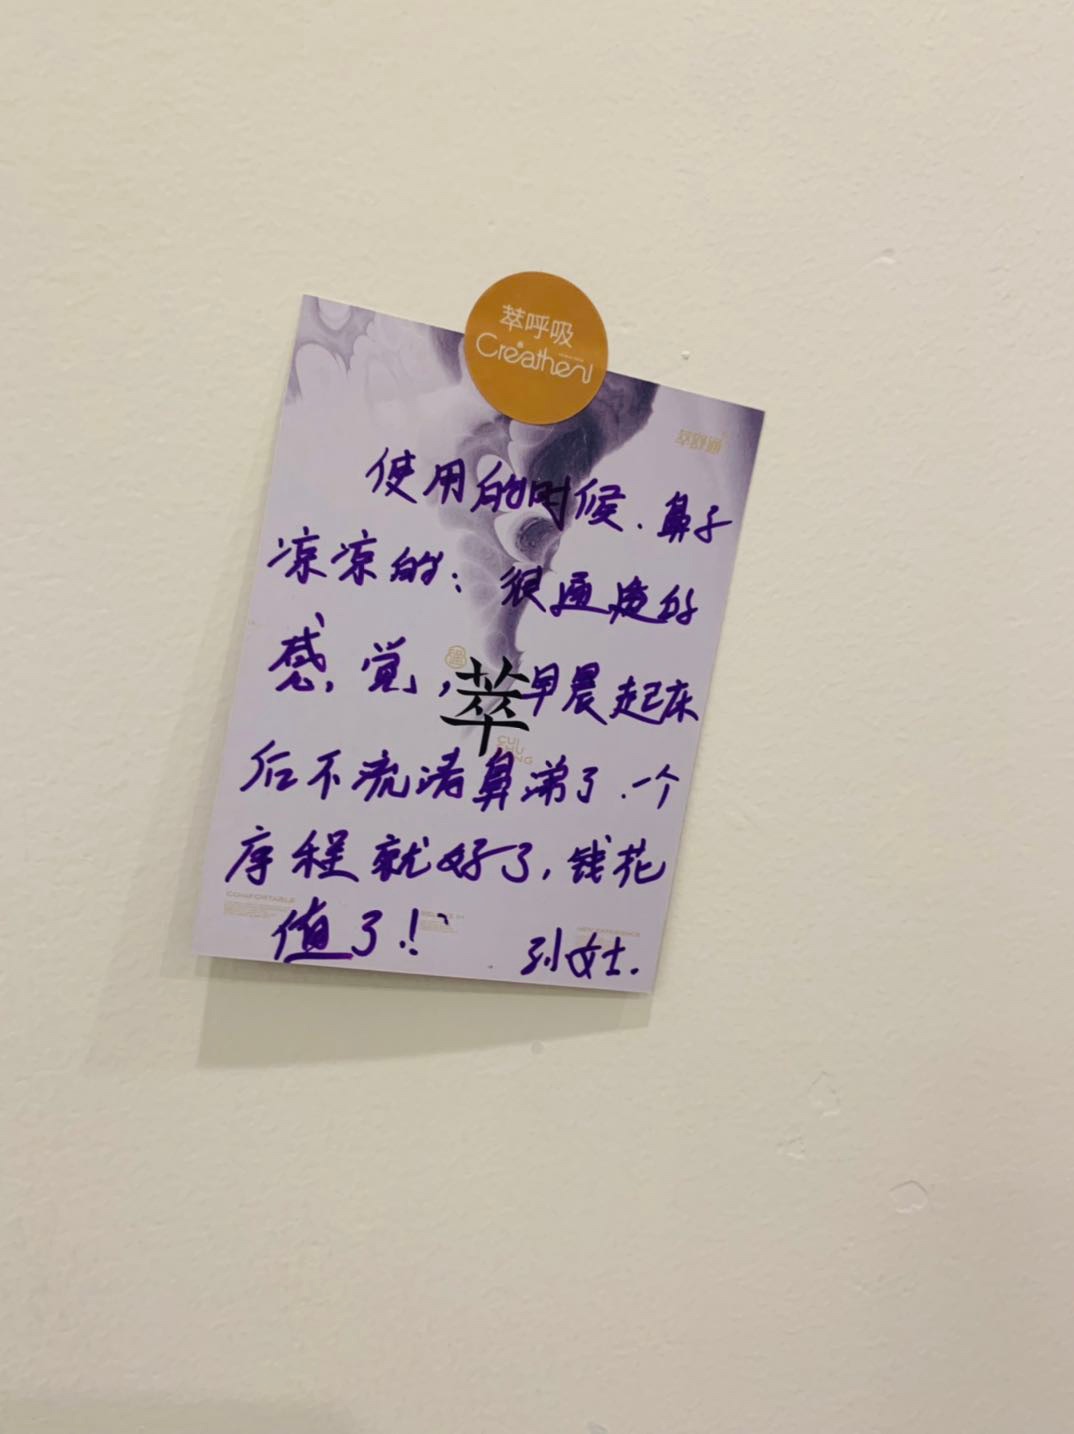 萃呼吸
Creathen
萃舒通
使用的时候、鼻子
凉凉的；很通透的
感觉，早晨起床
后不流清鼻涕了、一个
疗程就好了,钱花
值了！
孙女士.
萃
CUI
SHU
TONG
COMFORTABLE
NEW EXPERIENCE